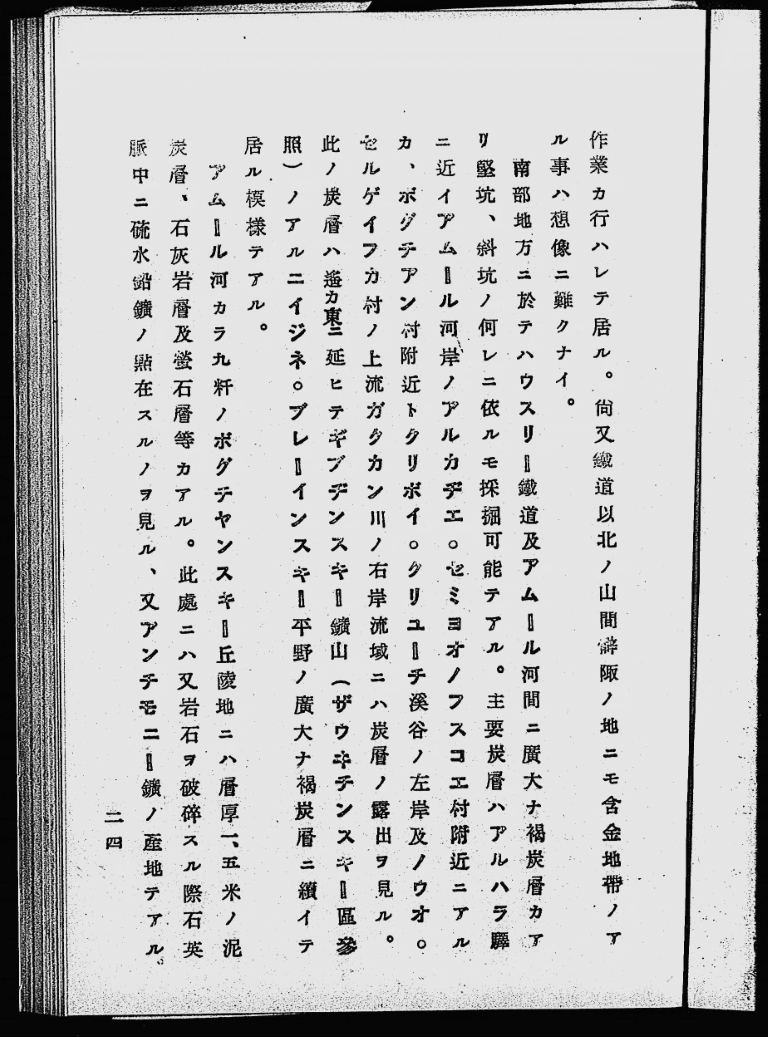 作業カ行ハレテ居ル。尙又鐵道以北ノ山間僻陬ノ地ニモ含金地帶ノア
ル事ハ想像ニ難クナイ。
南部地方ニ於テハウスリー鐵道及アムール河間ニ廣大ナ褐炭層カア
リ堅坑、斜坑ノ何レニ依ルモ採掘可能テアル。主要炭層ハアルハラ驛
ニ近イアムール河岸ノアルカヂエ。セミヨオノフスコエ村附近ニアル
カ、ボグチアン村附近トクリボイ。クリユーチ溪谷ノ左岸及ノウオ。
セルゲイフカ村ノ上流ガタカン川ノ右岸流域ニハ炭層ノ露出ヲ見ル。
此ノ炭層ハ遙カ東ニ延ヒテギブヂンスキー鑛山(ザウキチンスキー區參
照)ノアルニイジネ。ブレーインスキー平野ノ廣大ナ褐炭層ニ續イテ
居ル模様テアル。
アムール河カラ九粁ノボグチヤンスキー丘陵地ニハ層厚一、五米ノ泥
炭層、石灰岩層及螢石層等カアル。此處ニハ又岩石ヲ破碎スル際石英
脈中ニ硫水鉛鑛ノ點在スルノヲ見ル、又アンチモニー鑛ノ產地テアル。
二四